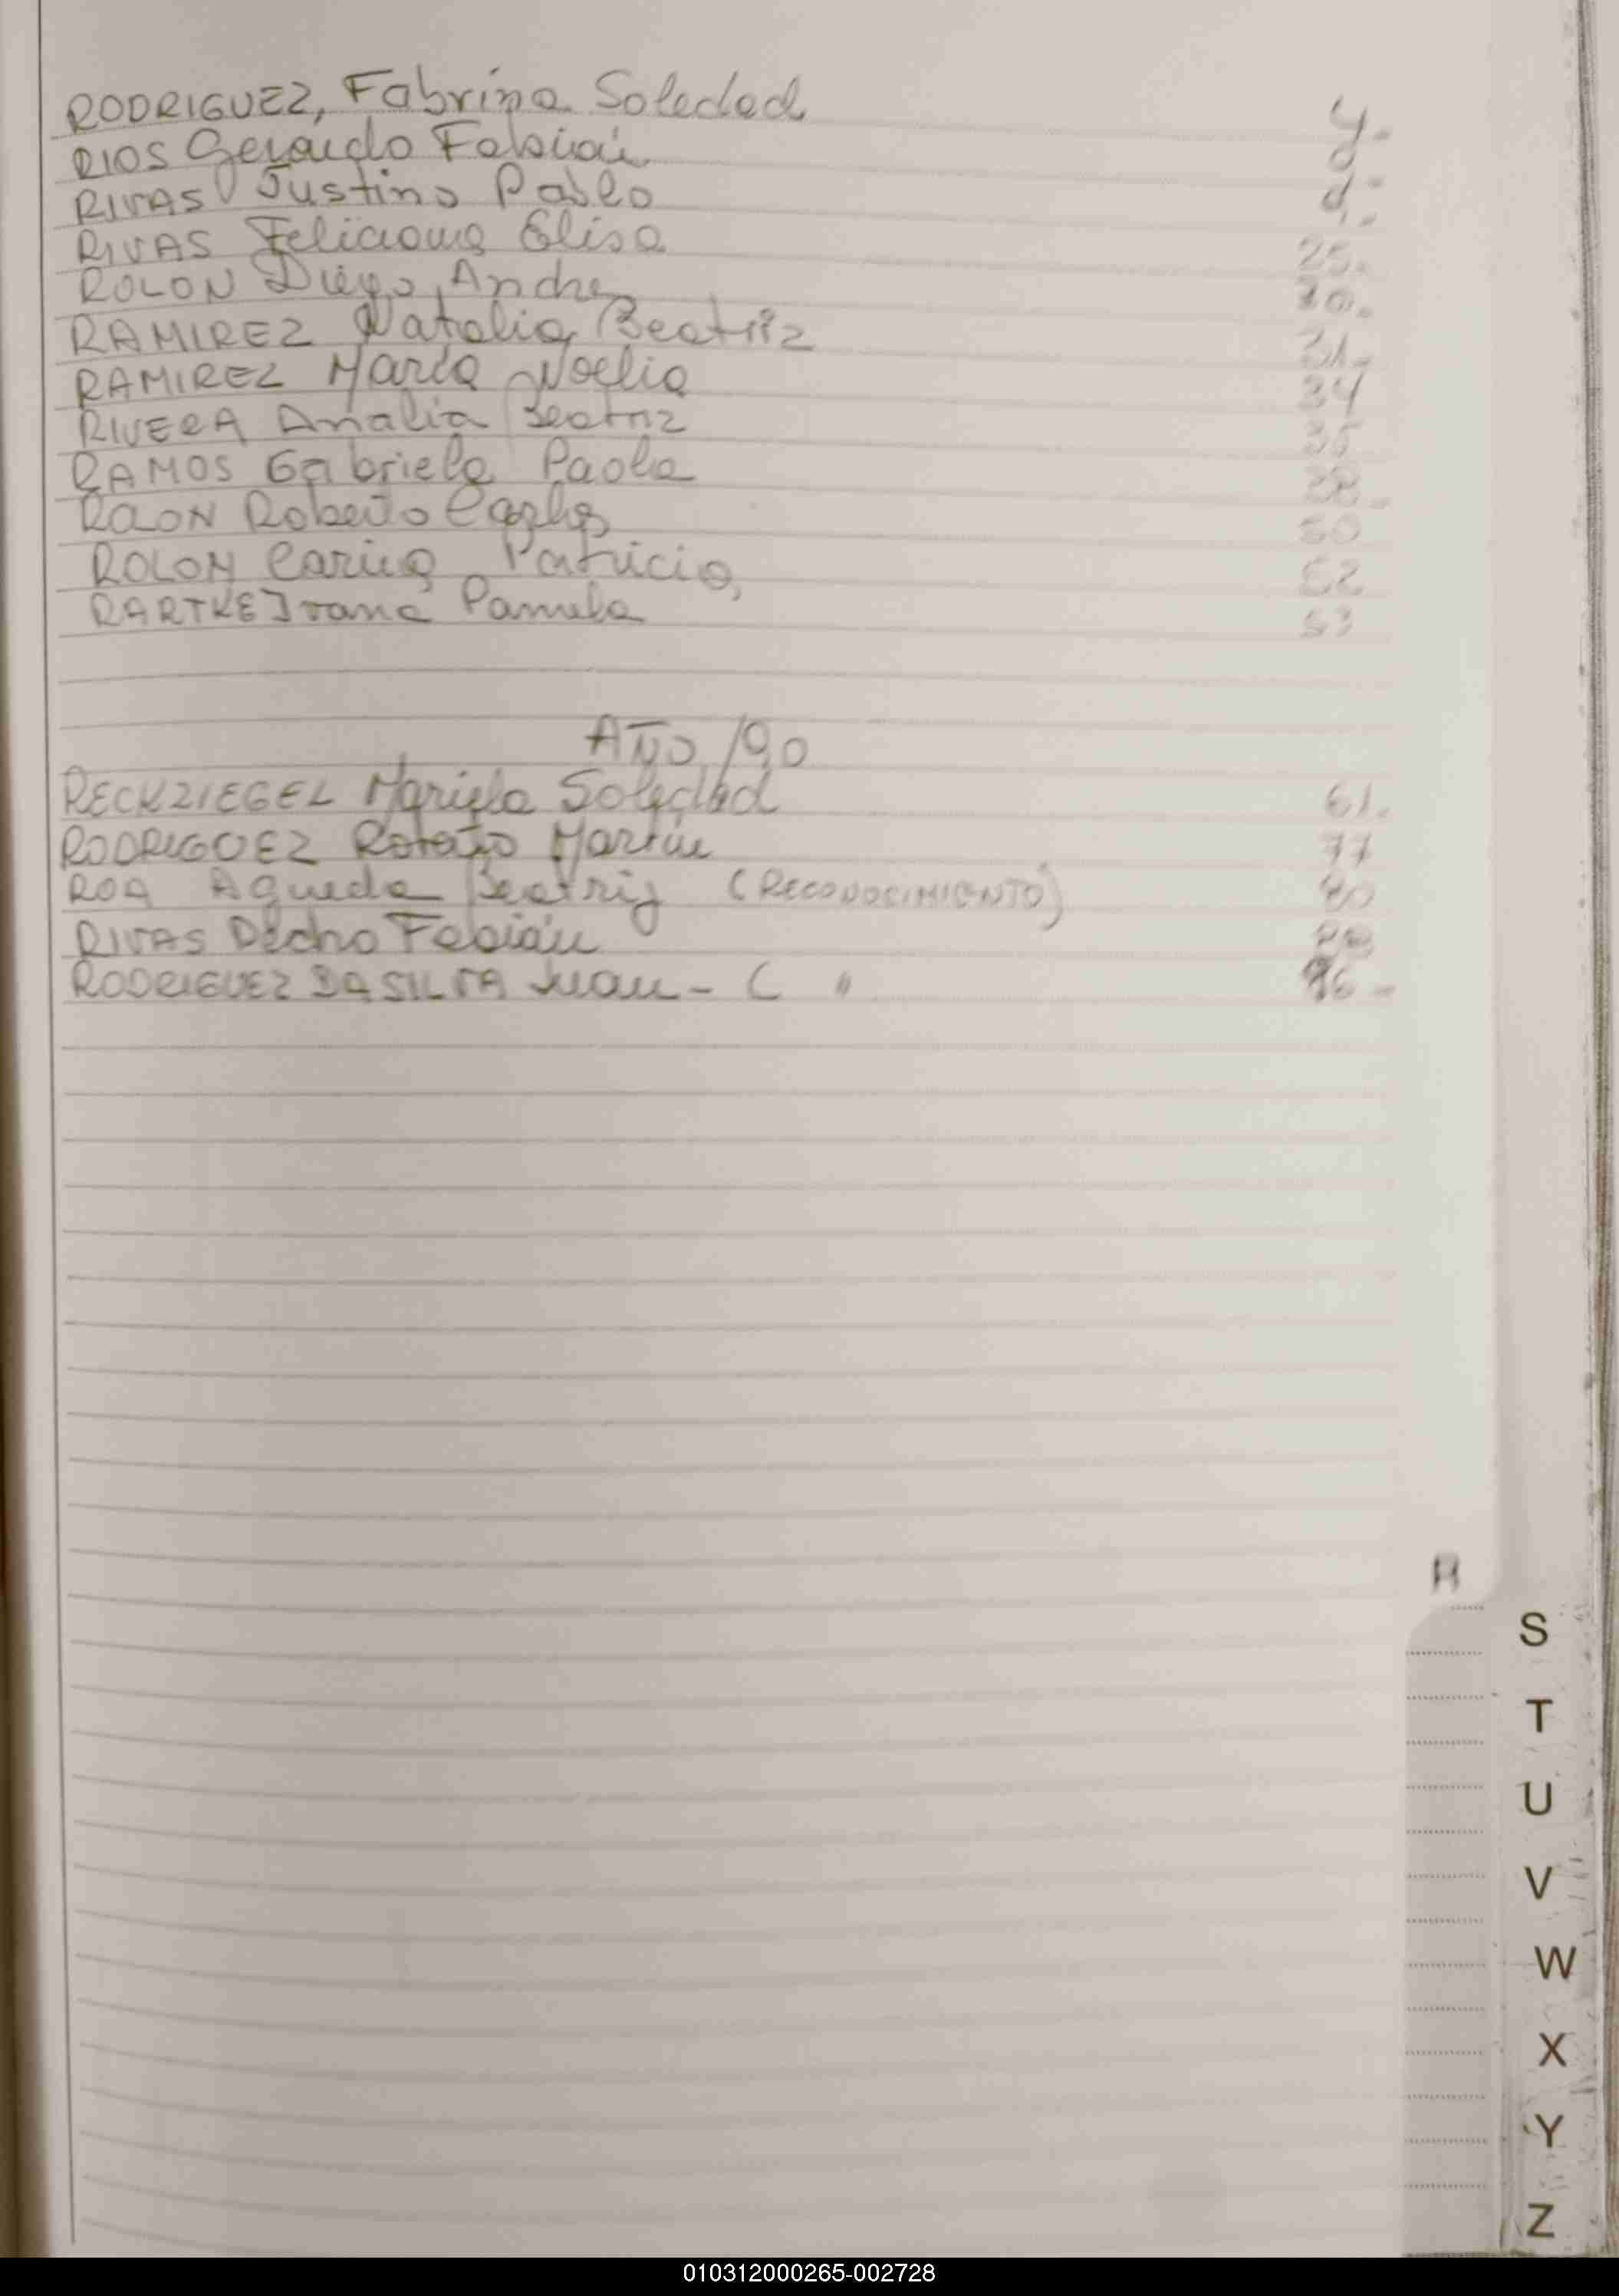 RODRIGUEZ, Fabrina Soledad 4-
RIOS Gerardo Fabián
RIVAS Justino Pablo
RIVAS Feliciana Elisa 25.
ROLON Diego Andre 30.
RAMIREZ Natalia Beatriz 31-
RAMIREZ María Noelia 34
RIVERA Analia Beatriz 35
RAMOS Gabriela Paola 38-
ROLON Roberto Carlos 50
ROLON Carina Patricia, 52
RARTKE Ivana Pamela 53
AÑO /90
RECKZIEGEL Mariela Soledad 61.
RODRIGUEZ Martín 77
ROA Agueda Beatriz (RECONOCIMIENTO) 80
RIVAS Fabián
RODRIGUEZ DA SILVA Juan - ( " 96-
R
S
T
U
V
W
X
Y
Z
010312000265-002728